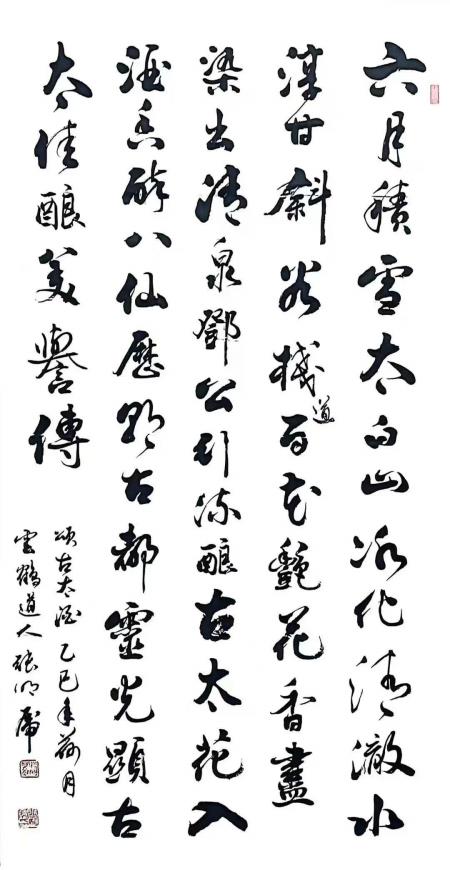 六月積雪太白山冰化清澈水
甘斜谷棧道百花艷花香盡
染出清泉鄧公引流酿古太花入
酒香醉八仙歷朝古都靈光顯古
太佳酿美譽傳
頌古太酒 乙巳年荷月
雲鶴道人張明虎